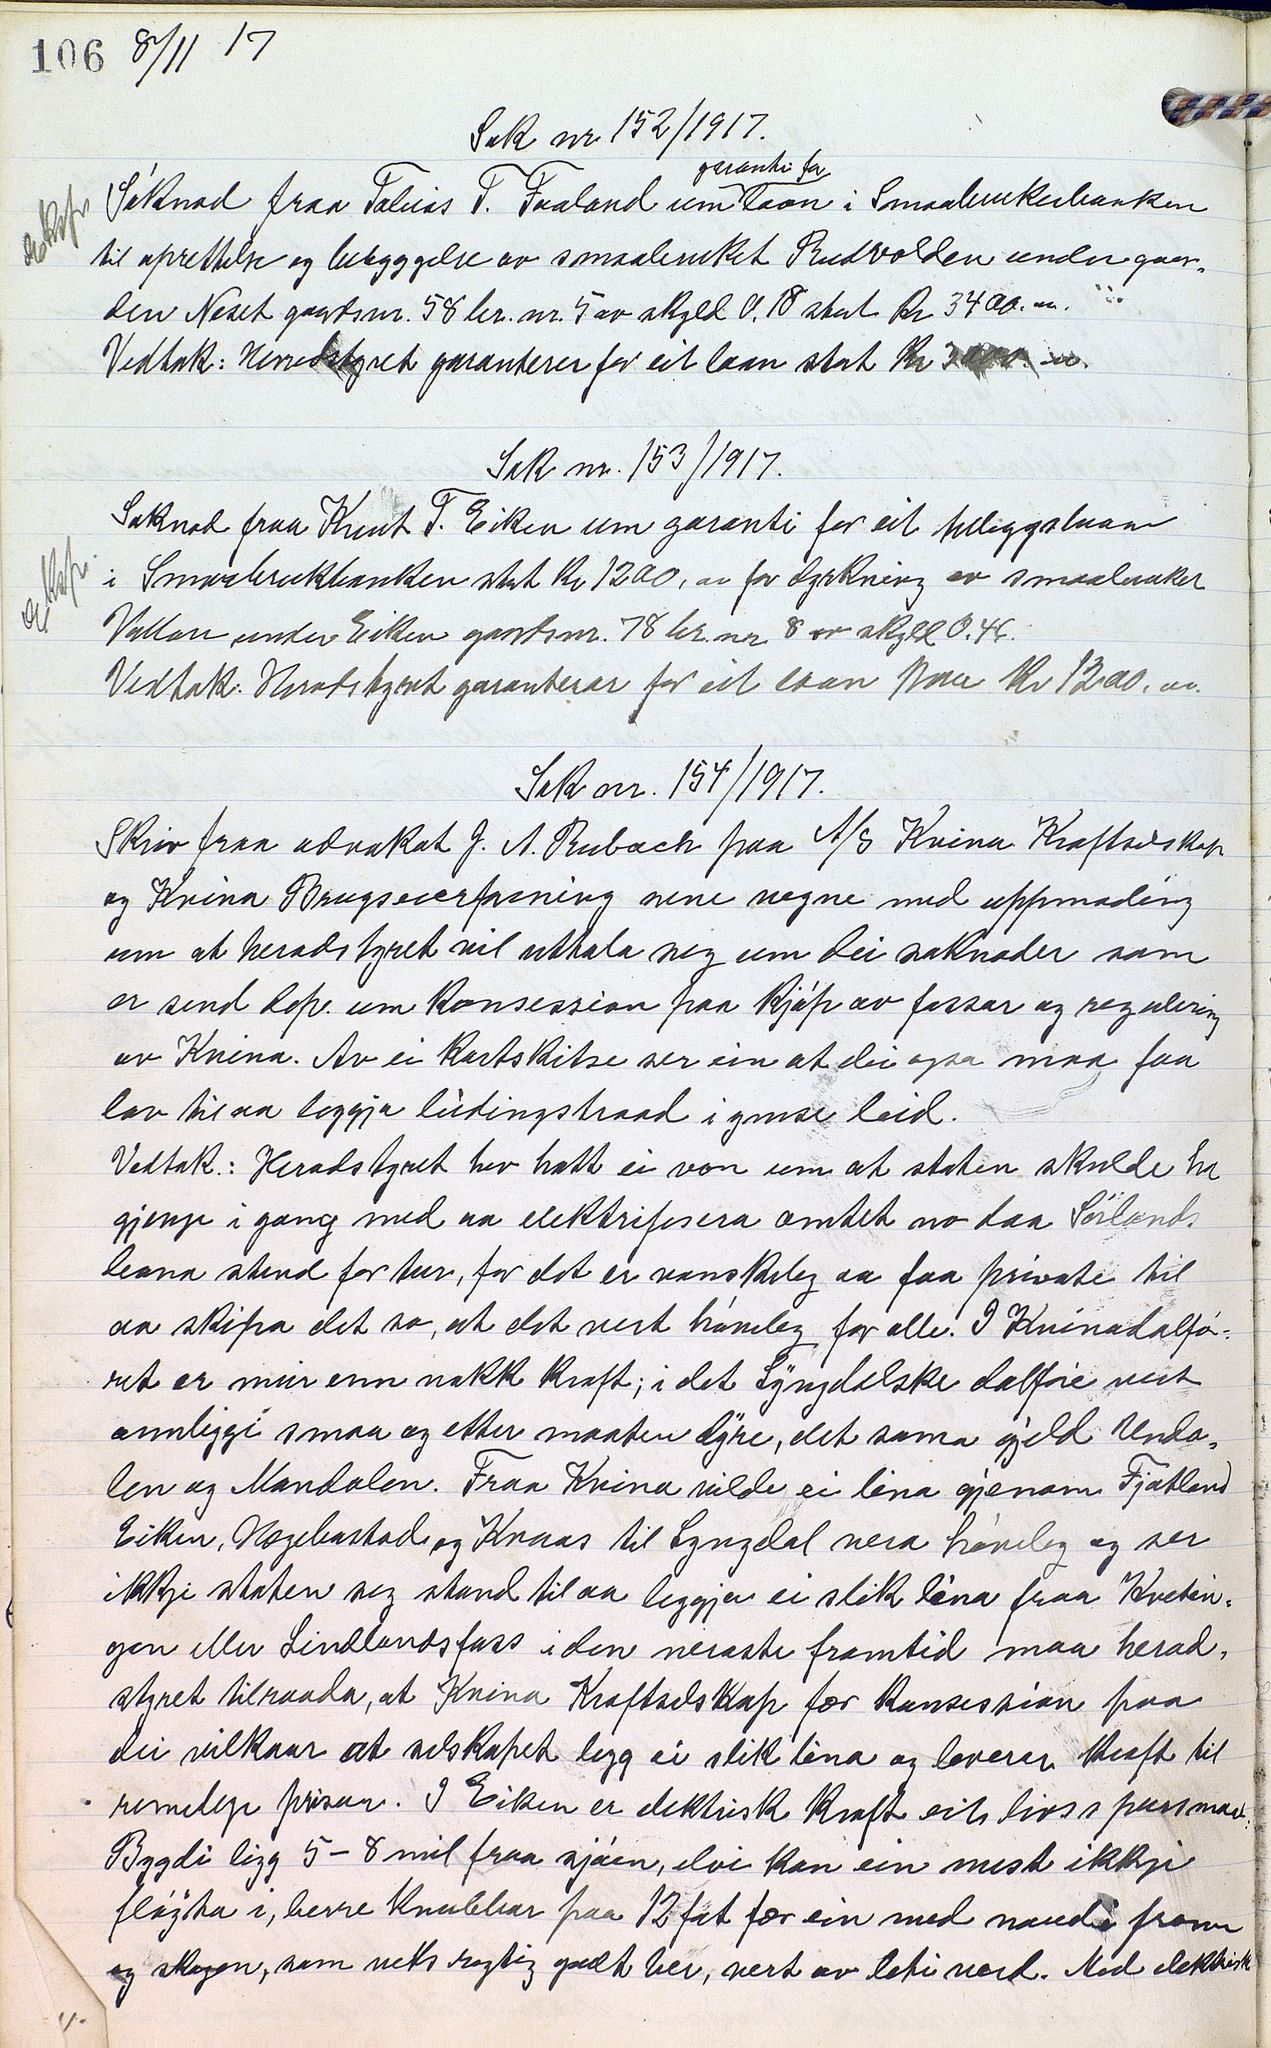 106 8/11 17
Sak nr 152/1917.
garanti for
Søknad fraa Tobias T. Faaland um laan i Smaabrukerbanken
til oprettelse og bebyggelse av smaabruket Rudvolden under gaar-
den Neset gaardsnr. 58 br. nr. 5 av skyld 0,18 stort Kr 3400.00.
Vedtak: Herredstyret garanterer for eit laan stort Kr
Sak nr. 153/1917.
Søknad fraa Knut T. Eiken um garanti for eit tilleggslaan
i Smaabrukbanken stort Kr 1200,00 for dyrkning av smaabruket
under Eiken gaardsnr. 78 br. nr 8 av skyld 0.46.
Vedtak: Heradstyret garanterar for eit laan Kr 1200,00.
Sak nr. 154/1917.
Skriv fraa advokat J. A. Rubach paa A/S Kvina Kraftselskap
og Kvina Brugseierforening sine vegne med uppmoding
um at heradstyret vil uttala seg um dei søknader som
er send dep. um konsession paa kjøp av fossar og regulering
av Kvina. Av ei kartskitse ser ein at dei ogsa maa faa
lov til aa leggja leidingstraad i ymse leid.
Vedtak: Heradstyret hev hatt ei von um at staten skulde ha
gjenge i gang med aa elektrifisera amtet no daa Sørlands
bana stend for tur, for det er vanskeleg aa faa private til
aa skipa det so, at det vert høveleg for alle. I Kvinadalfø-
ret er meir enn nokk kraft; i det Lyngdalske dalføre vert
annleggi smaa og etter maaten dyre, det sama gjeld Unda-
len og Mandalen. Fraa Kvina vilde ei lina gjenom Fjotland
Eiken, Hægebostad og Kvaas til Lyngdal vera høveleg og ser
ikkje staten seg stand til aa leggja ei slik lina fraa Kvetin-
gen eller Lindlandsfoss i den neraste framtid maa herad-
styret tilraada, at Kvina Kraftselskap fær konsession paa
dei vilkaar at selskapet legg ei slik lina og leverer kraft til
rimelege prisar. I Eiken er elektrisk kraft eit livsspursmaal.
Bygdi ligg 5-8 mil fraa sjøen, elvi kan ein mest ikkje
fløyta i, berre knubbar paa 12 fot fær ein med naud fram
og skogen, som veks rogtig godt her, vert av liti verd. Med elektrisk